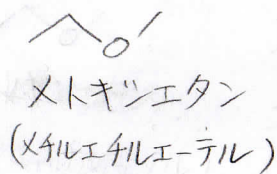 O
メトキシエタン
(メチルエチルエーテル)